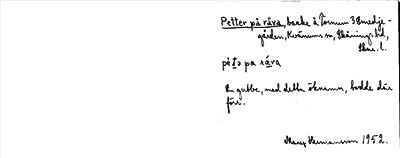 Petter på råva, backe å Tornum 3 Smedje-
gården, Kvänums sn, Skånings hd,
Skar. l.
pèta pa ráva
En gubbe, med detta öknamn, bodde där
förr.
Mary Hermansson 1952.